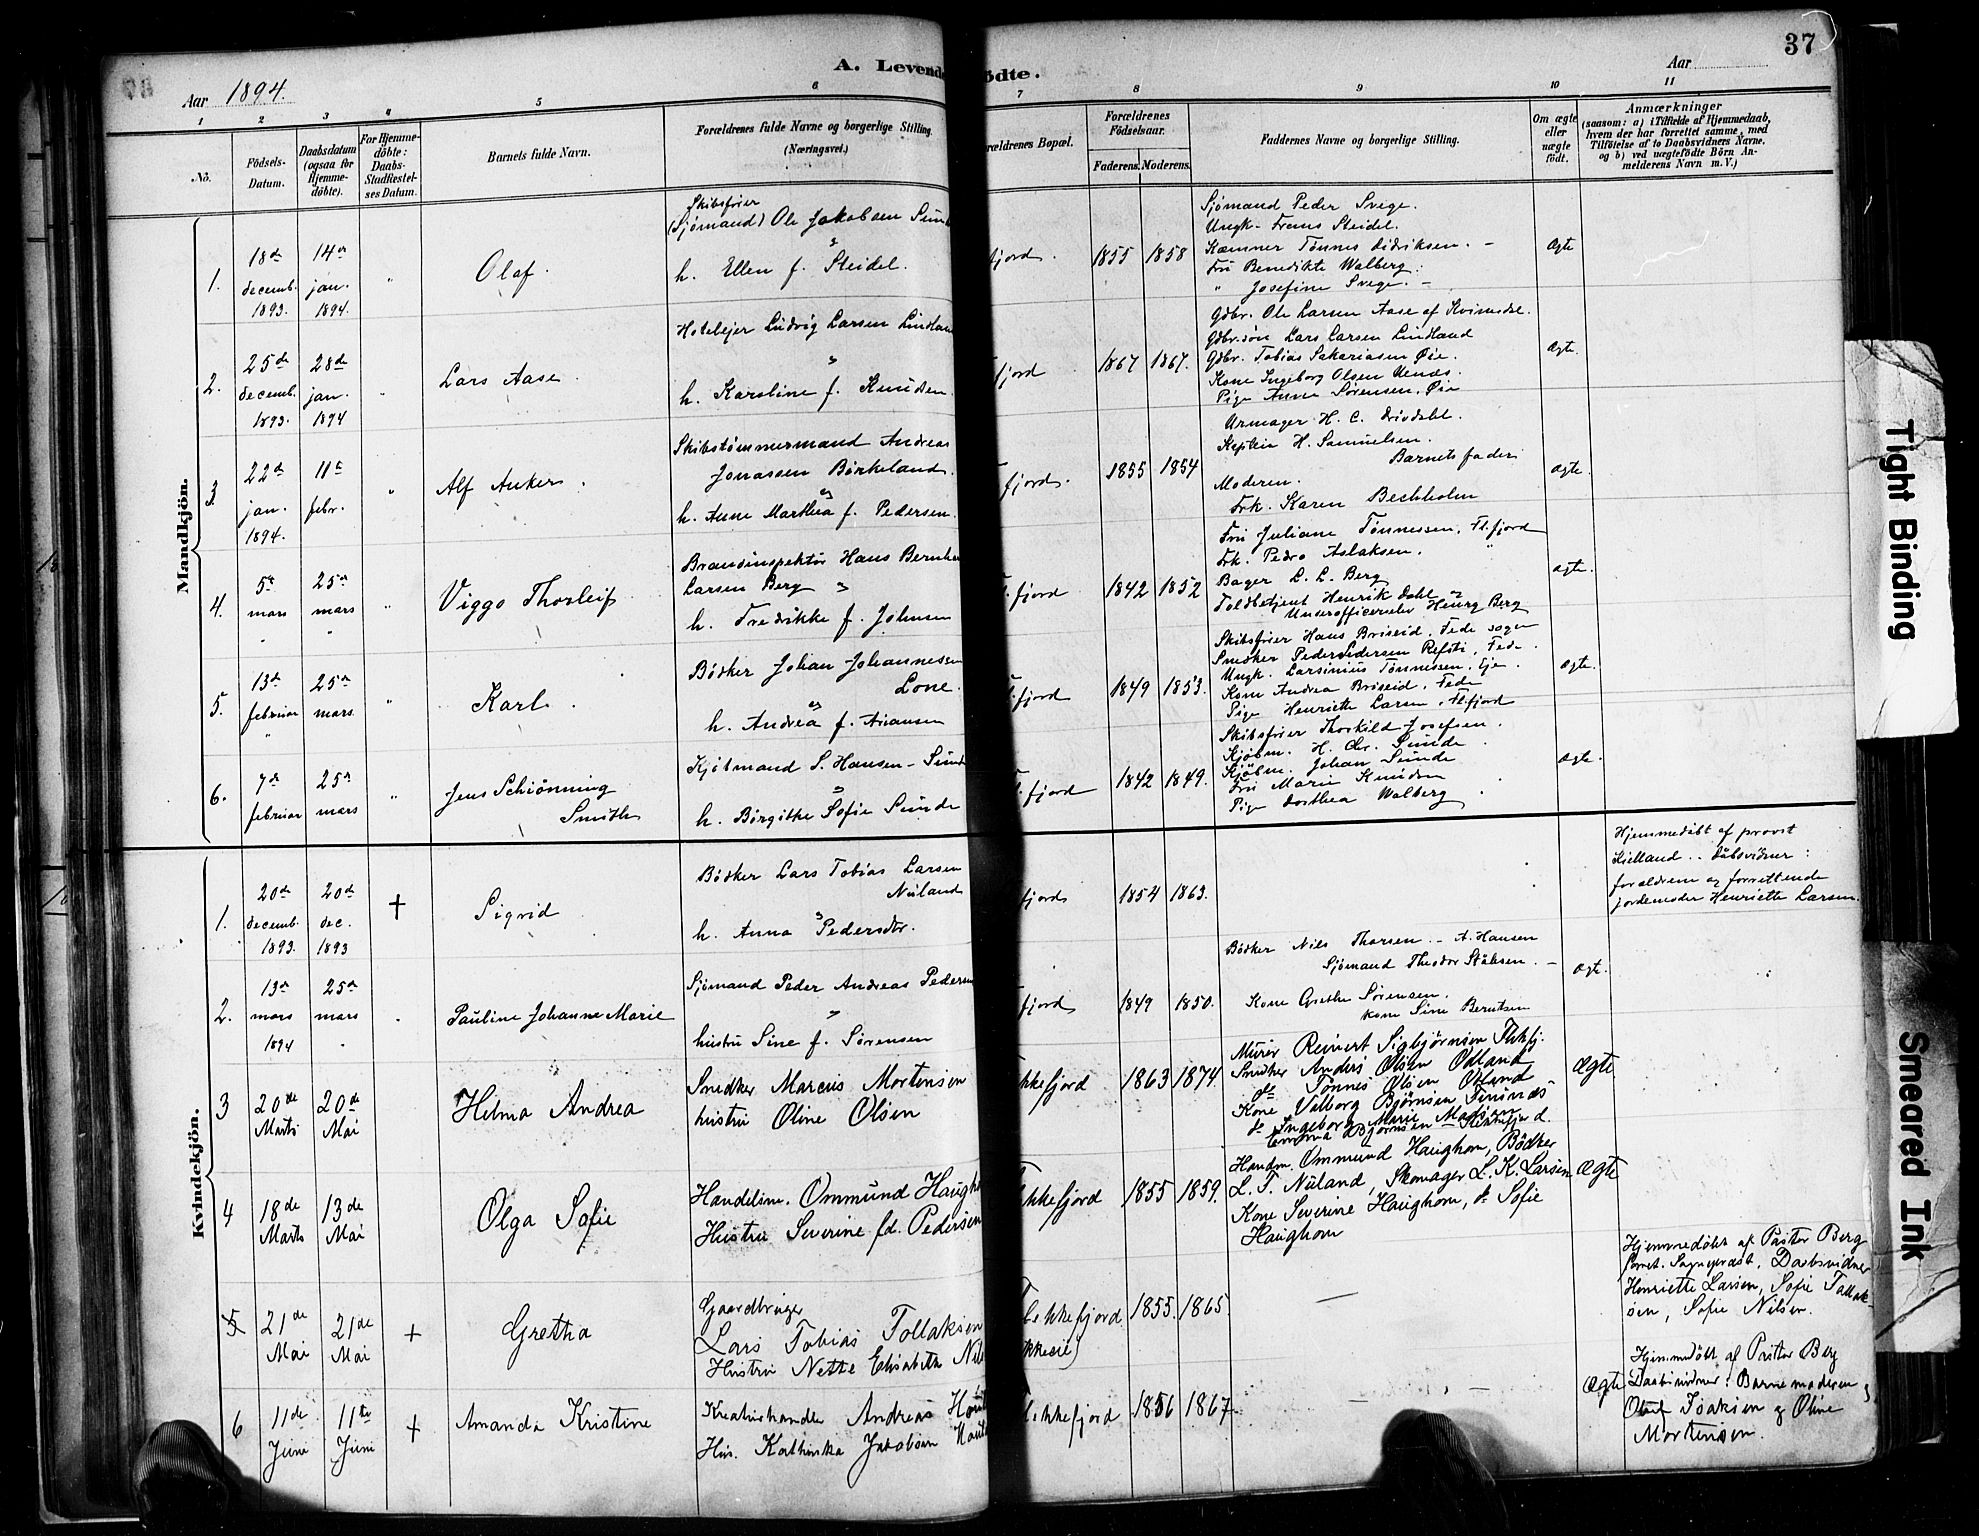 Aar 1894.
A. Levende
ödte.
37
Aar
1 2 3 4 5 6 7 8 9 10 11
No.
Födsels-
Datum.
Daabsdatum
(ogsaa for
Hjemme-
döbte).
For Hjemme-
döbte:
Daabs-
Stadfæstel-
ses Datum.
Barnets fulde Navn.
Forældrenes fulde Navne og borgerlige Stilling.
(Næringsvei.)
orældrenes Bopæl.
Forældrenes
Födselsaar.
Faderens. Moderens.
Faddernes Navne og borgerlige Stilling.
Om ægte
eller
uægte
födt.
Anmærkninger
(saasom: a) i Tilfælde af Hjemmedaab,
hvem der har forrettet samme, med
Tilföielse af to Daabsvidners Navne,
og b) ved uægtefödte Börn An-
melderens Navn m. V.)
Mandkjön.
1.
18de
decemb.
1893.
14de
jan.
1894.
"
Olaf.
Skibsfører
(Sjømand) Ole Jakobsen Sund
h. Ellen f. Steidel.
fjord.
1855 1858
Sjømand Peder Svege.
Ungk. Frans Steidel.
Kæmner Tønnes Didriksen. -
Fru Benedikte Walberg.
" Josefine Svege. -
Ægte
2.
25de
decemb.
1893.
28de
jan.
1894
"
Lars Aase.
Hoteleier Ludvig Larsen Lindland
h. Karoline f. Knudsen.
fjord
1867 1867.
Gdbr. Ole Larsen Aase af Kvinesdal.
Gdbr.søn Lars Larsen Lindland
Gdbr. Tobias Sakariasen Øie.
Kone Ingeborg Olsen
Pige Anna Sørensen, Øie
Ægte.
3
22de
jan.
1894.
11te
febr.
"
Alf Anker.
Skibstømmermand Andreas
Jonassen Birkeland.
h. Anne Marthea f. Pedersen.
fjord.
1855 1854
Urmager H. C. Drivdahl.
Kaptein H. Samuelsen.
Barnets fader
Moderen.
Frk. Karen Beckholm
Ægte.
4.
5te
mars
"
25de
mars
"
"
Viggo Thorleif
Brandinspektør Hans Bernha
Larsen Berg
h. Fredrikke f. Johnsen
fjord
1842 1852
Fru Juliane Tønnessen, Fl.fjord
Frk. Pedra Aslaksen. "
Bager L. L. Berg
Toldbetjent Henrik Dahl
Underofficerselev Henry Berg
Ægte.
5.
13de
februar
"
25de
mars
"
Karl.
Bødker Johan Johannessen
Lone.
h. Andrea f.
fjord
1849 1853.
Skibsfører Hans Briseid, Fede sogn
Snedker Peder Pedersen Refsti, Fede.
Ungk. Larsinius Tønnessen,
Kone Andrea Briseid, Fede
Pige Henriette Larsen, Fl.fjord
Ægte.
6.
7de
februar
25de
mars
"
Jens Schiönning
Smith
Kjøbmand S. Hansen-Sunde
h. Birgitte Sofie Sunde
fjord
1842 1849.
Skibsfører Thorkild Josefsen.
Kjøbm. H. Chr. Sunde
Kjøbm. Johan Sunde
Fru Marie Knudsen
Pige Dorthea Walberg.
Ægte.
Kvindekjön.
1.
20de
decemb.
1893
20de
dec.
1893
+
Sigrid
Bødker Lars Tobias Larsen
Nuland
h. Anna Pedersdtr.
fjord
1854 1863.
Hjemmedøbt af provst
Kielland.. Dåbsvidner:
forældrene og forrettende
jordemoder Henriette Larsen.
2.
13de
mars
1894
25de
mars
"
Pauline Johanne Marie
Sjømand Peder Andreas Pedersen
hustru Sine f. Sørensen
fjord
1849 1850.
Bødker Nils Thorsen. - A. Hansen
Sjømand Theodor Stålesen. -
Kone Grethe Sørensen.
Kone Sine Berntsen
Ægte.
3
20de
Marts
20de
Mai
Helma Andrea
Snedker Marcus Mortensen
hustru Oline Olsen
kkefjord
1863 1874
Murer Reinert Sigbjørnsen Flekkefj.
Snedker Anders Olsen Ödland
do Tönnes Olsen Ödland
Kone Valborg Björnsen
do Ingeborg Marie Madsen
Emma Björnsen - Flekkefjord.
Ægte
4
18de
Marts
13de
Mai
Olga Sofie
Handelsm. Ommund Haugho
Hustru Severine fd. Pedersen
ekkefjord
1855 1859.
Handm. Ommund Haughom, Bödker
L. T. Nuland, Skomager L. K. Larsen
Kone Severine Haughom, do Sofie
Haughom
Ægte
5
21de
Mai
21de
Mai
+
Gretha
Gaardbruger
Lars Tobias Tollaksen
Hustru Nette Elisabeth Nil
lekkefjord
1855. 1865
—
Hjemmedöbt af Pastor Berg
Daabsvidner
Henriette Larsen, Sofie Tollak-
sen, Sofie Nilsen.
6
11de
Juni
11te
Juni
+
Amanda Kristine
Kreaturhandler Andreas
Hus. Kathinka Jakobsen
lekkefjord
1856 1867
Ægte
Hjemmedöbt af Pastor Berg
Daabsvidner: Barnemoderen
Isaksen og Oline
Mortensen.
Tight Binding
Smeared Ink